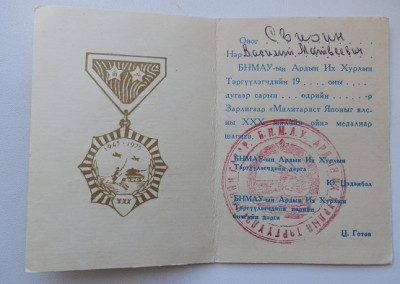 1945-1975
XXX
Овог
Нэр Василий Матвеевич
БНМАУ-ын Ардын Их Хурлын
Тэргүүлэгчдийн 19 ... оны ....
дугаар сарын ..... өдрийн ......-р
Зарлигаар «Милитарист Японыг ялс-
ны XXX жилийн ойн» медалиар
шагнав.
БНМАУ-ын Ардын Их Хурлын
Тэргүүлэгчдийн дарга
Ю. Цэдэнбал
БНМАУ-ын Ардын Их Хурлын
Тэргүүлэгчдийн нарийн
бичгийн дарга
Ц. Готов